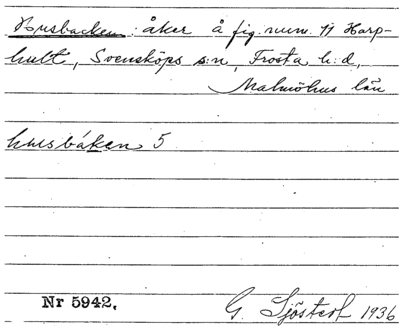 Husbacken: åker å fig. num. 11 Harp-
hult, Svensköps s:n, Frosta h:d,
Malmöhus län
husbáken 5
Nr 5942.
G. Sjöstedt 1936